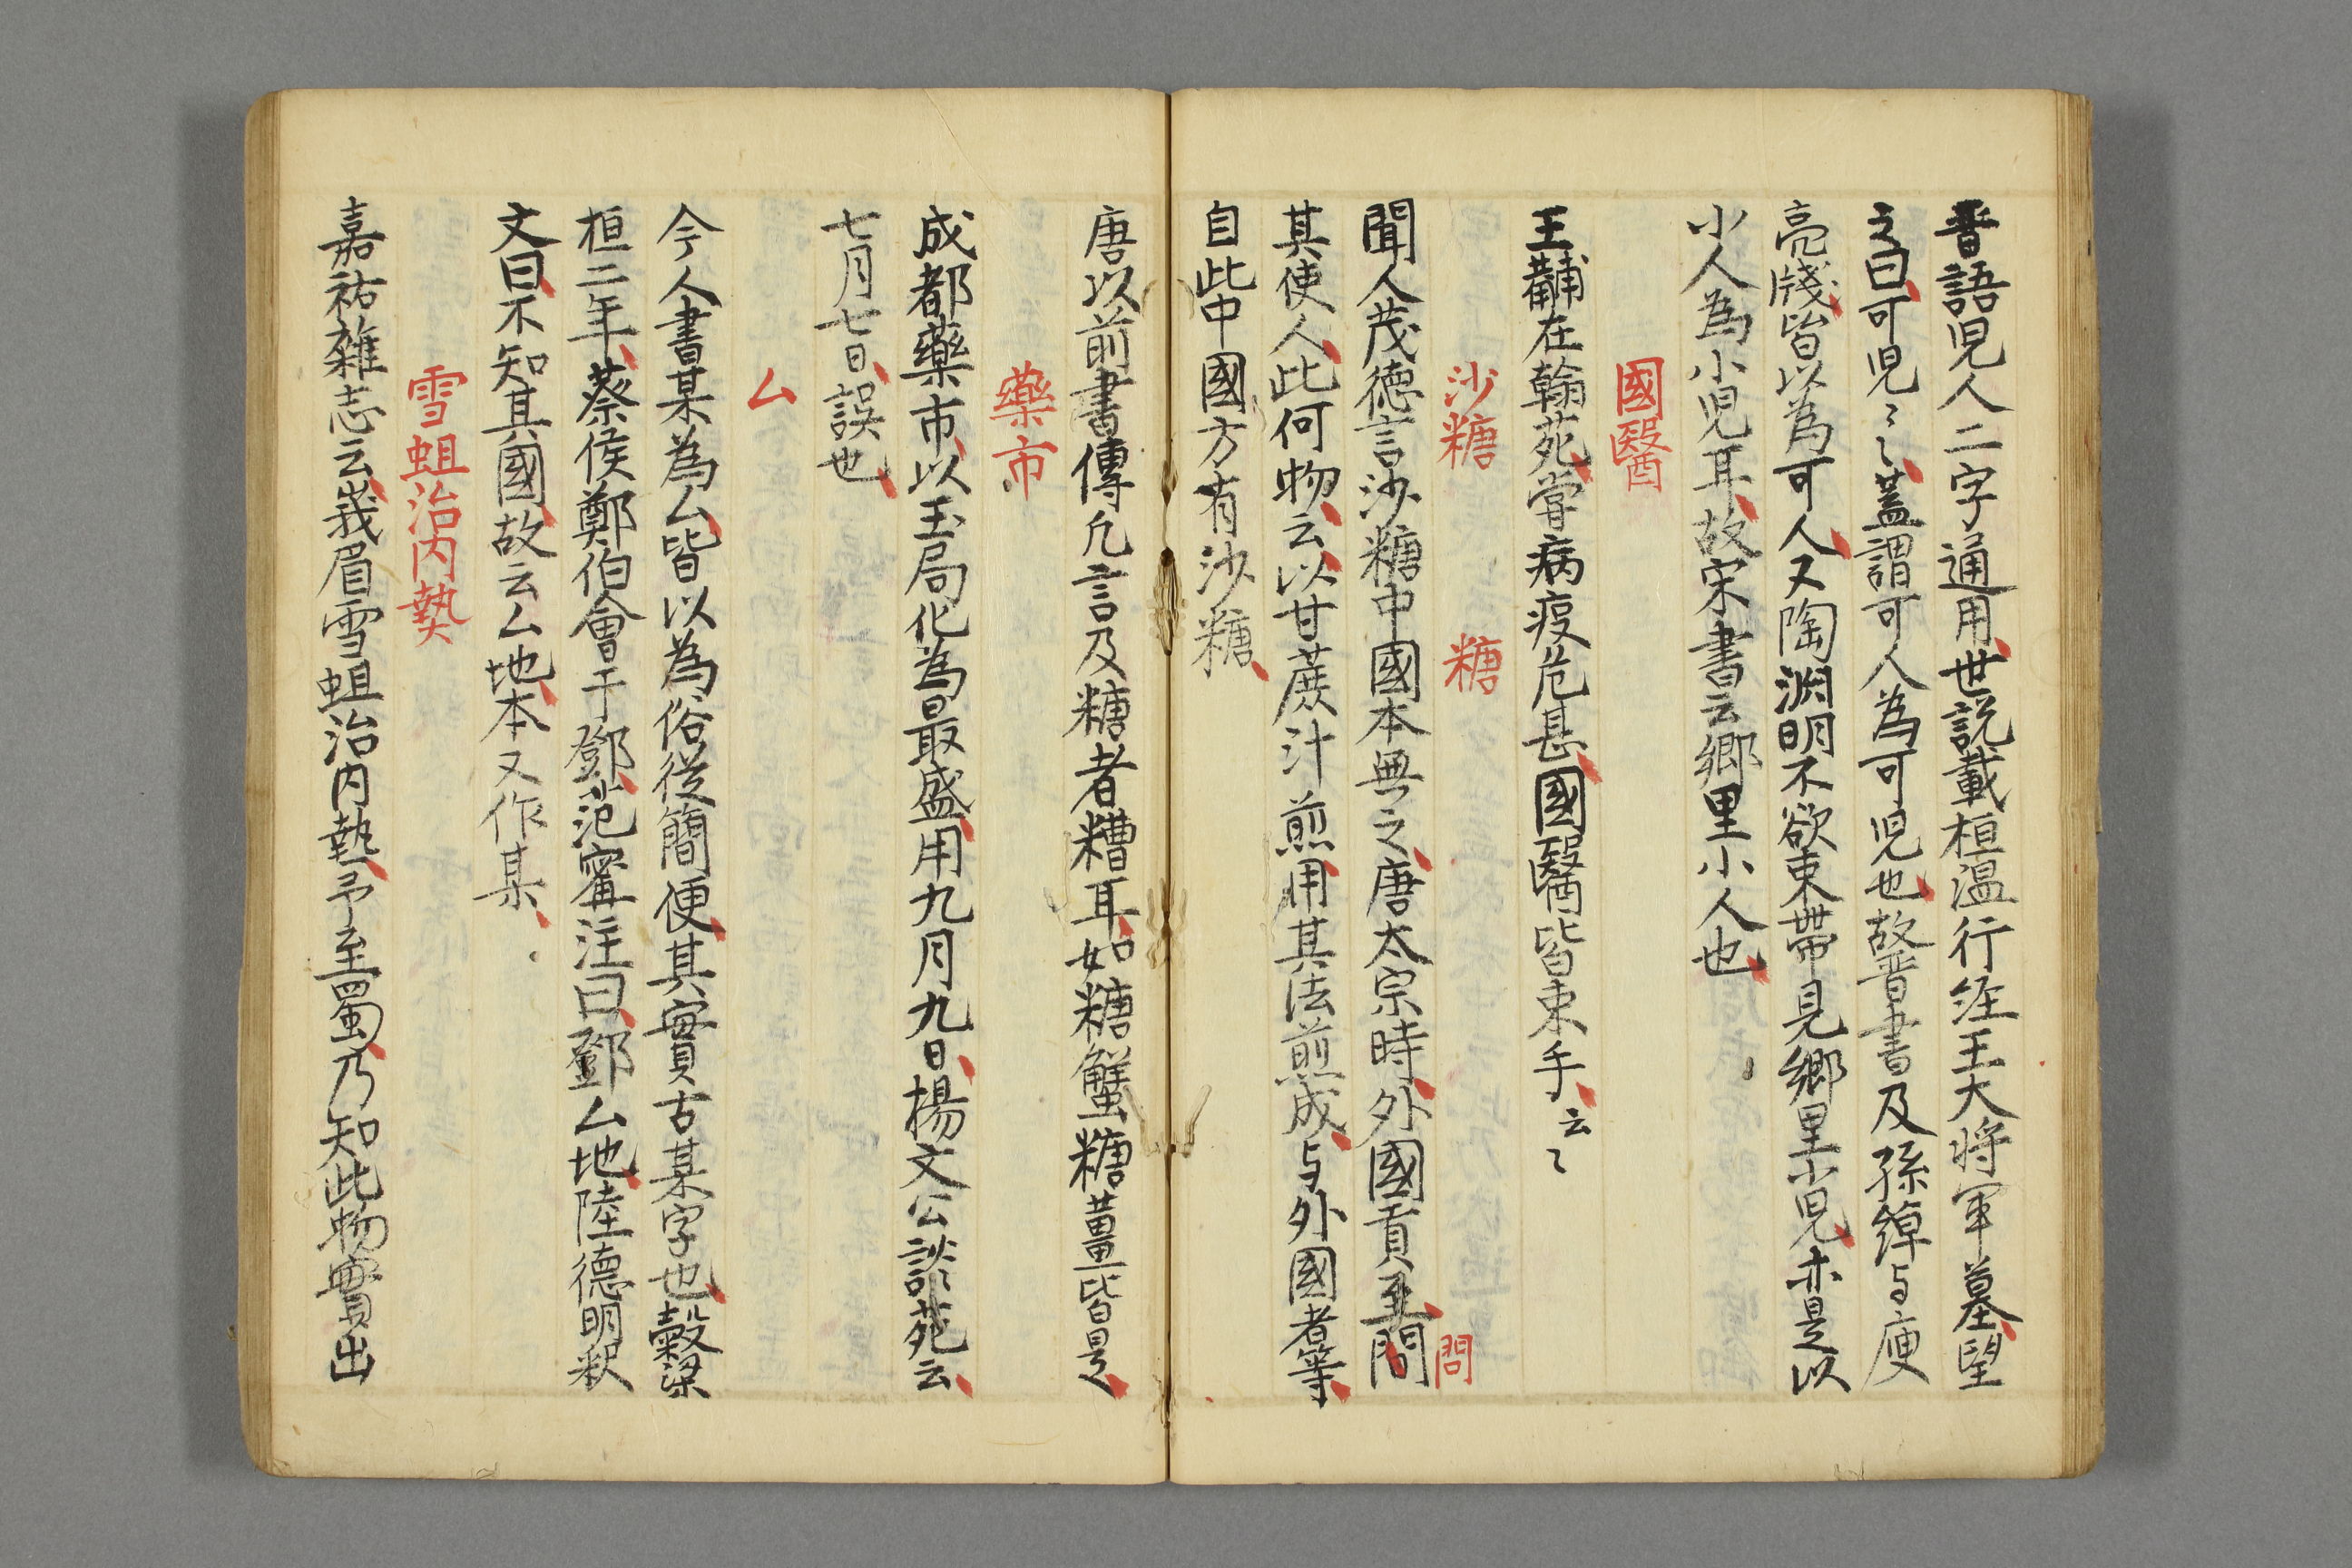 晋語児人二字通用世説載桓温行経王大将軍墓望
之曰可児〻〻蓋謂可人為可児也故晋書及孫綽与庾
亮牋皆以為可人又陶渕明不欲束帯見郷里小児亦是以
小人為小児耳故宋書云郷里小人也
國醫
王黼在翰苑甞病疫危甚國醫皆束手云〻
沙糖 糖
聞人茂德言沙糖中國本無之唐太宗時外國貢至問
問
其使人此何物云以甘蔗汁煎用其法煎成与外國者等
自此中國方有沙糖
唐以前書傳凢言及糖者糟耳如糖蟹糖薑皆是
藥市
成都藥市以玉局化為最盛用九月九日楊文公談苑云
七月七日誤也
厶
今人書某為厶皆以為俗従簡便其實古某字也穀梁
桓二年蔡侯鄭伯會于鄧范寗注曰鄧厶地陸德明釈
文曰不知其國故云厶地本又作某
雪蛆治内熱
嘉祐雜志云峩眉雪蛆治内熱予至蜀乃知此物實出